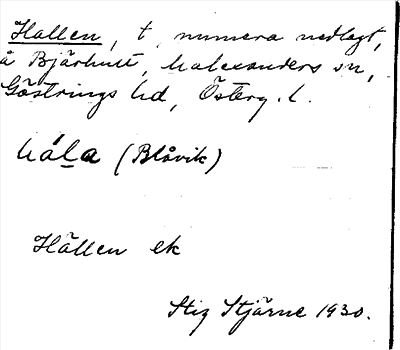 Hallen, t, numera nedlagt,
å Bjärhult, Malexanders sn,
Göstrings hd, Österg. l.
håla (Blåvik)
Hällen ek
Stig Stjärne 1930.